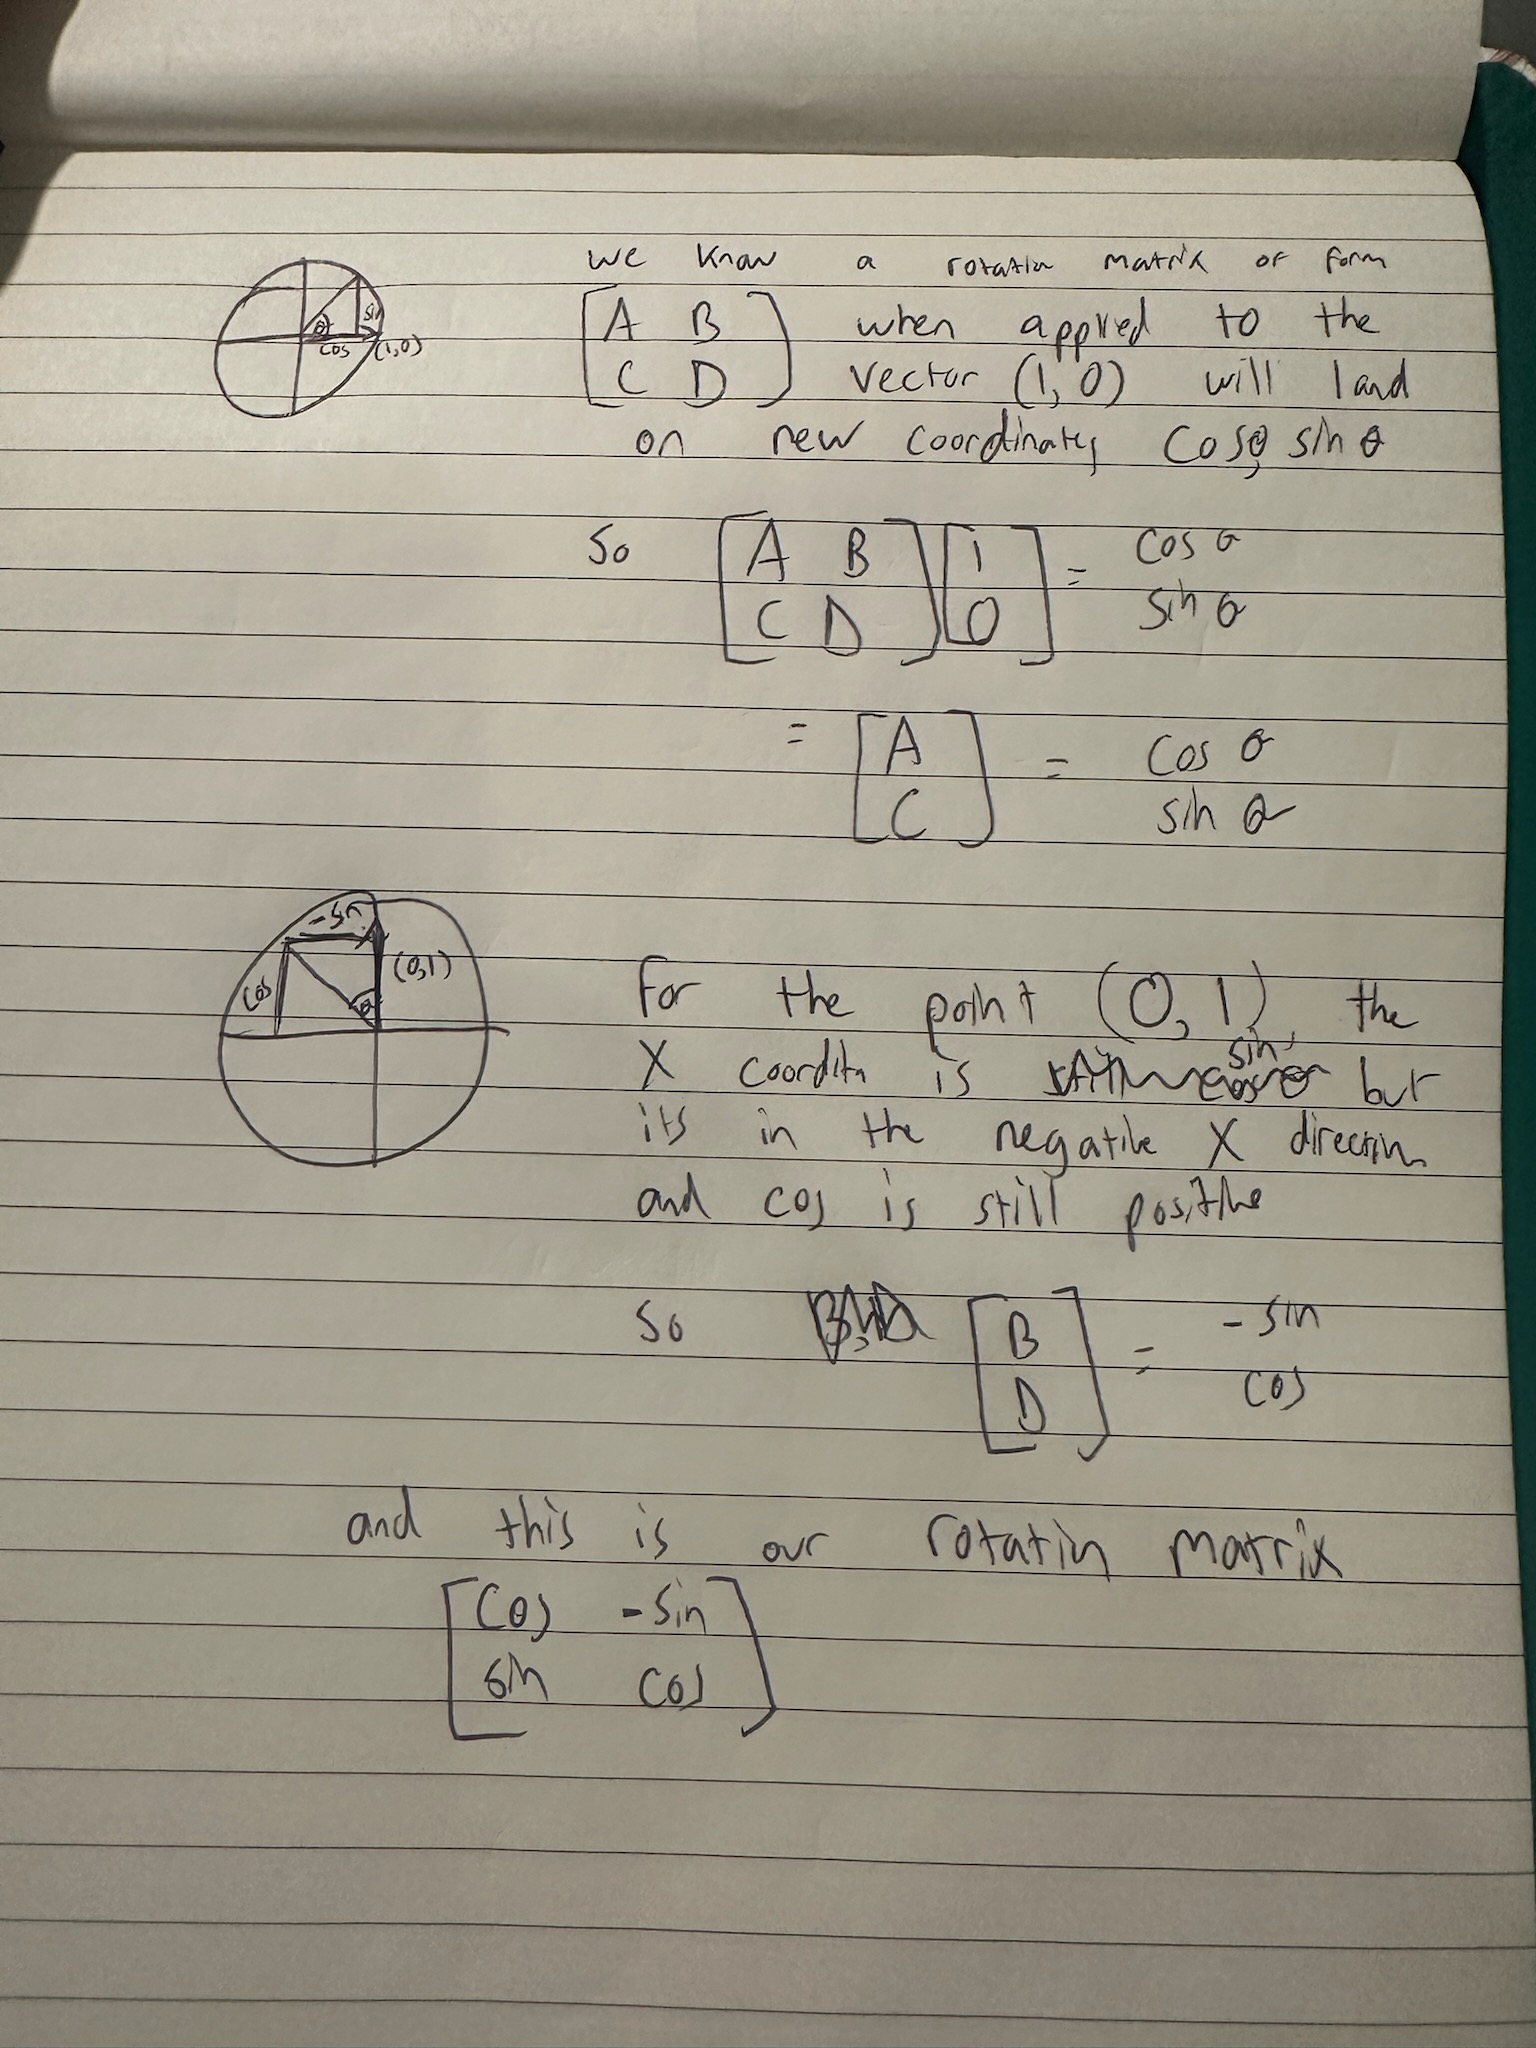 we know a rotation matrix of form
[A B
C D] when applied to the
vector (1, 0) will land
on new coordinates cosθ, sin θ
θ sin
cos (1,0)
So [A B
C D] [1
0] = cos θ
sin θ
= [A
C] = cos θ
sin θ
-sin
cos θ (0,1)
For the point (0, 1), the
X coordita is sin, but
its in the negative X direction
and cos is still positive
So [B
D] = - sin
cos
and this is our rotatin matrix
[cos -sin
sin cos]